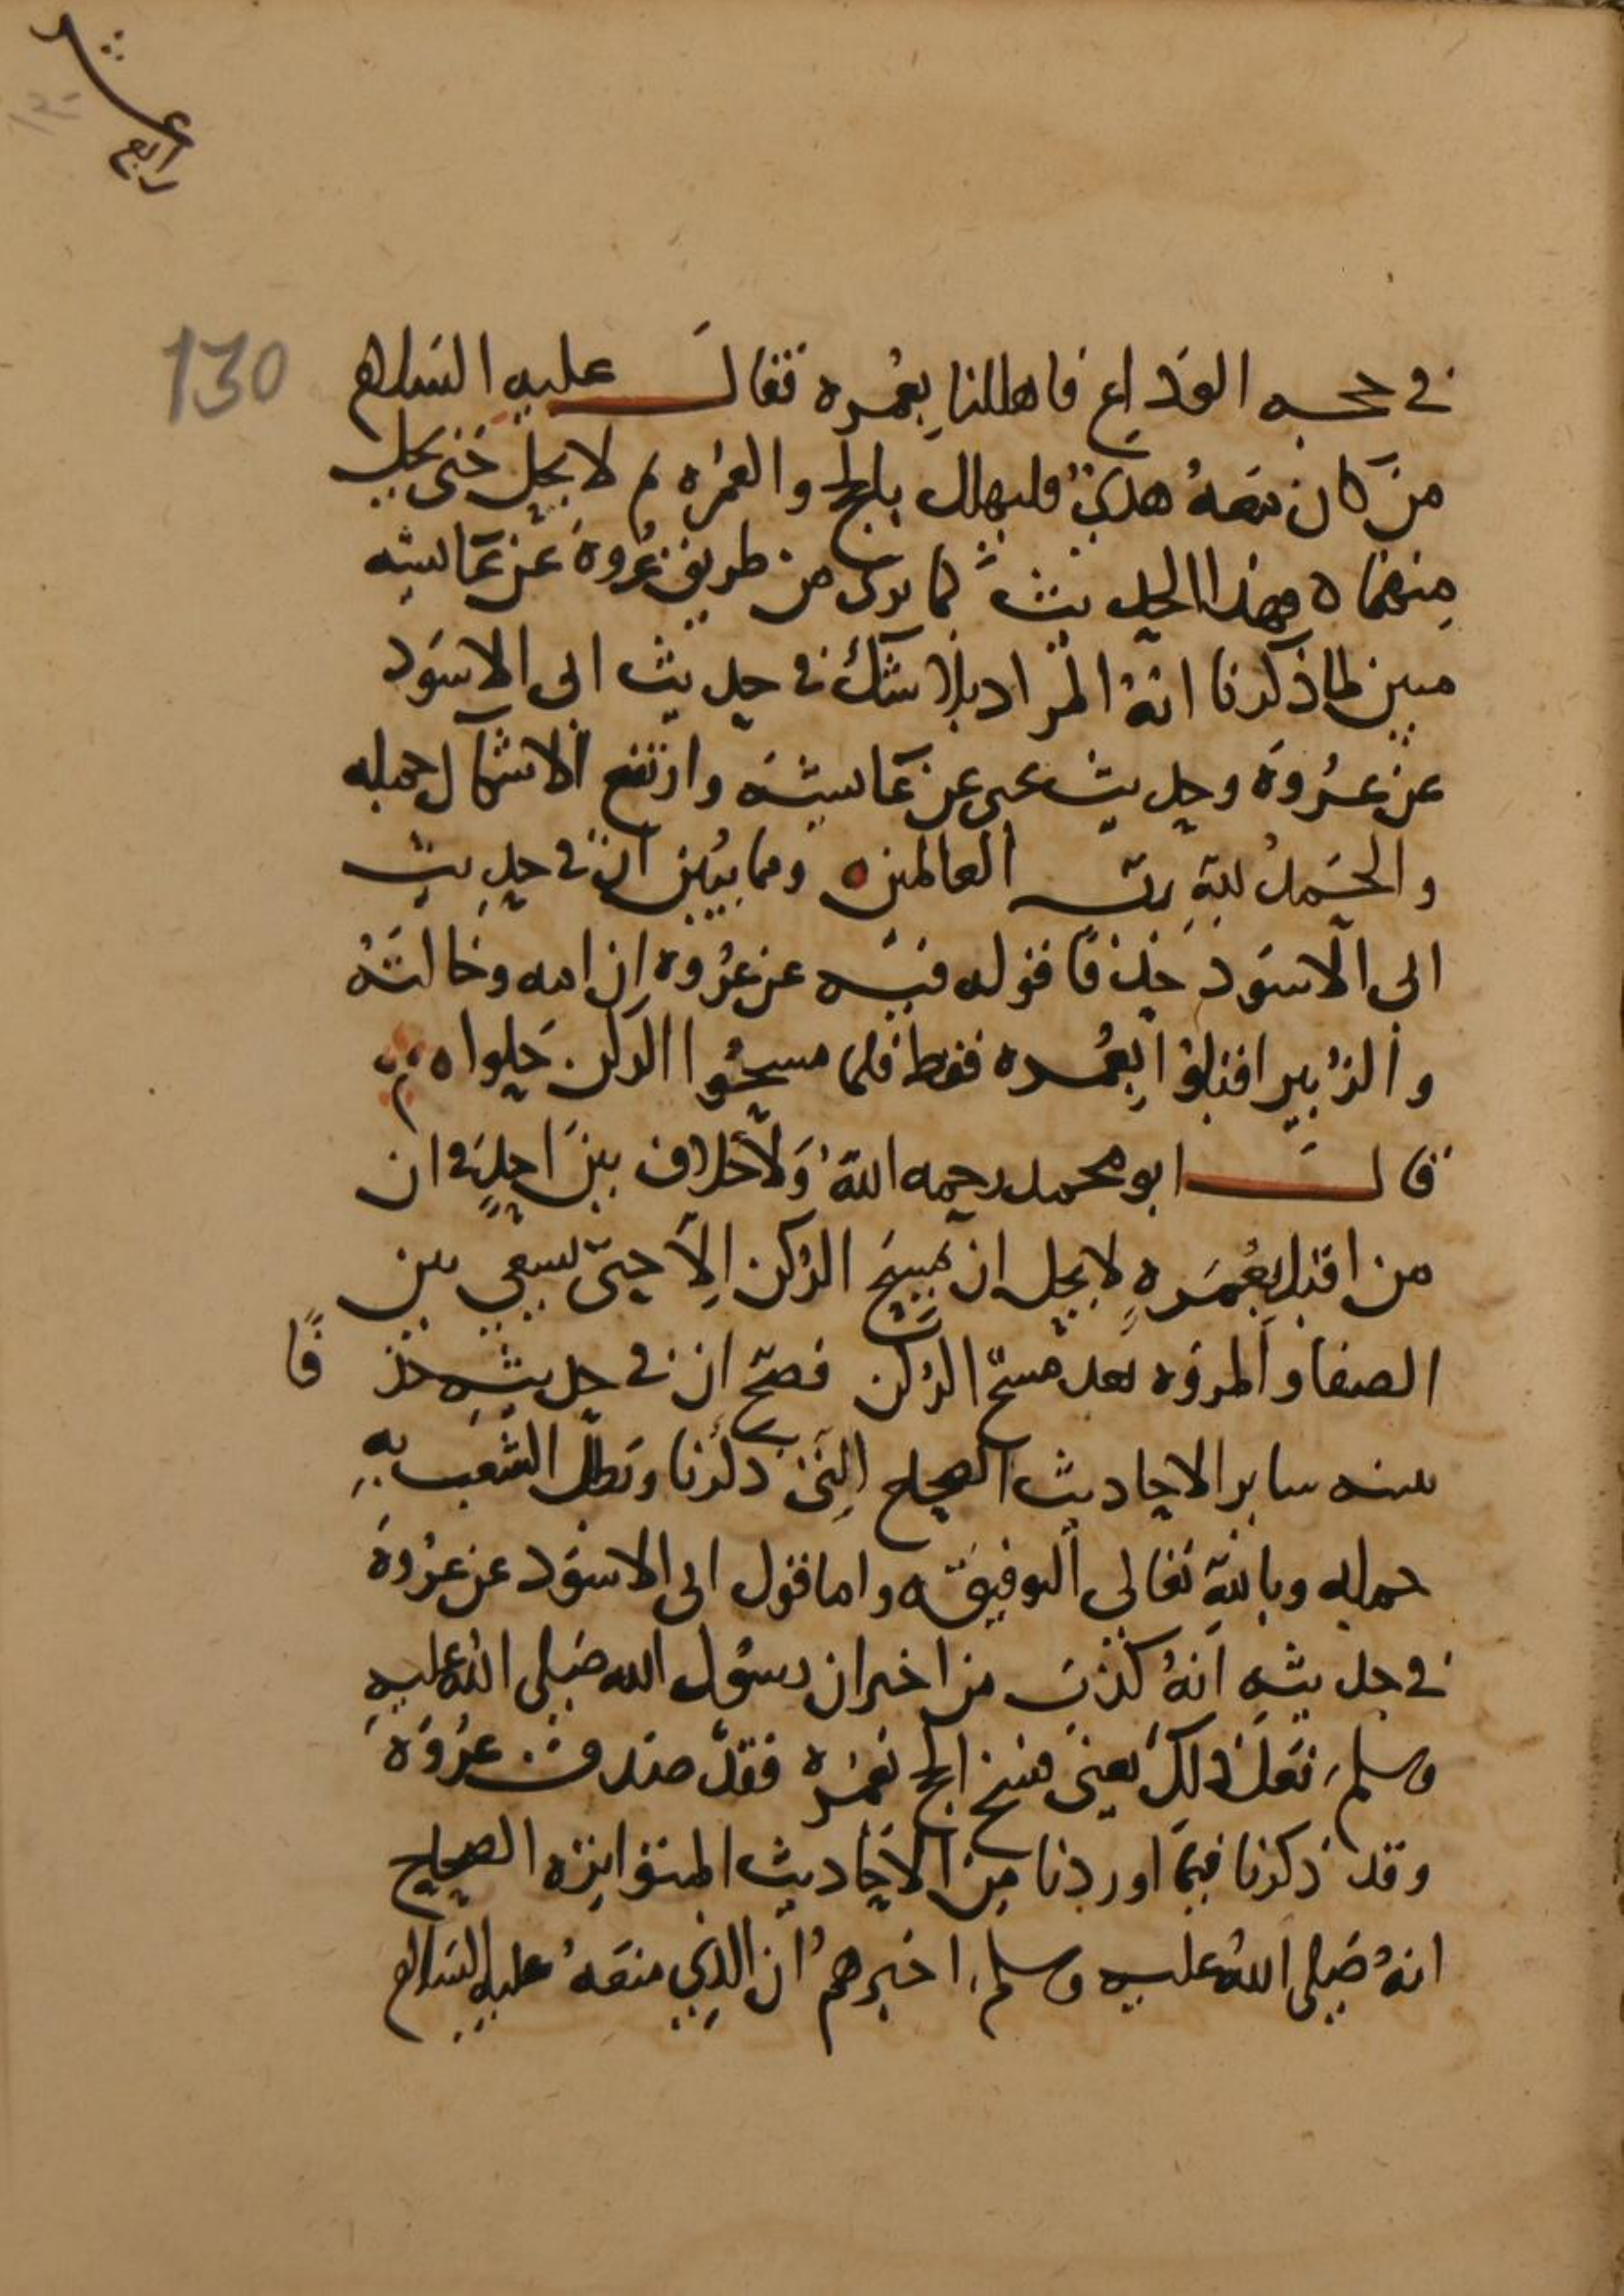 رابع عشر
130
في حجه الوداع فاهللنا بعمره فقال عليه السلام
من كان معه هدي فليهلل بالحج والعمره ثم لا يحل حتى يحل
منهما ه فهذا الحديث كما ترى من طريق عروة عن عائشه
مبين لما ذكرنا انه المراد بلا شك في حديث ابى الاسود
عن عروة وحديث يحيى عن عائشه وارتفع الاشكال جمله
والحمد لله رب العالمين ه ومما يبين ان في حديث
ابى الاسود حذفا قوله فيه عن عروه ان امه وخالته
والزبير اقبلوا بعمره فقط فلما مسحوا الركن حلوا ه
قال ابو محمد رحمه الله ولا خلاف بين احد في ان
من اقبل بعمره لا يحل ان مسح الركن الا حتى يسعى بين
الصفا والمروه بعد مسح الركن فصح ان في حديثه حذفا
بينه ساير الاحاديث الصحاح التي ذكرنا وبطل الشغب به
جمله وبالله تعالى التوفيق ه واما قول ابى الاسود عن عروة
في حديثه انه كذب من اخبر ان رسول الله صلى الله عليه
وسلم فعل ذلك يعني فسخ الحج بعمره فقد صدق عروة
وقد ذكرنا فيما اوردنا من الاحاديث المتواتره الصحاح
انه صلى الله عليه وسلم اخبرهم ان الذي منعه عليه السلام